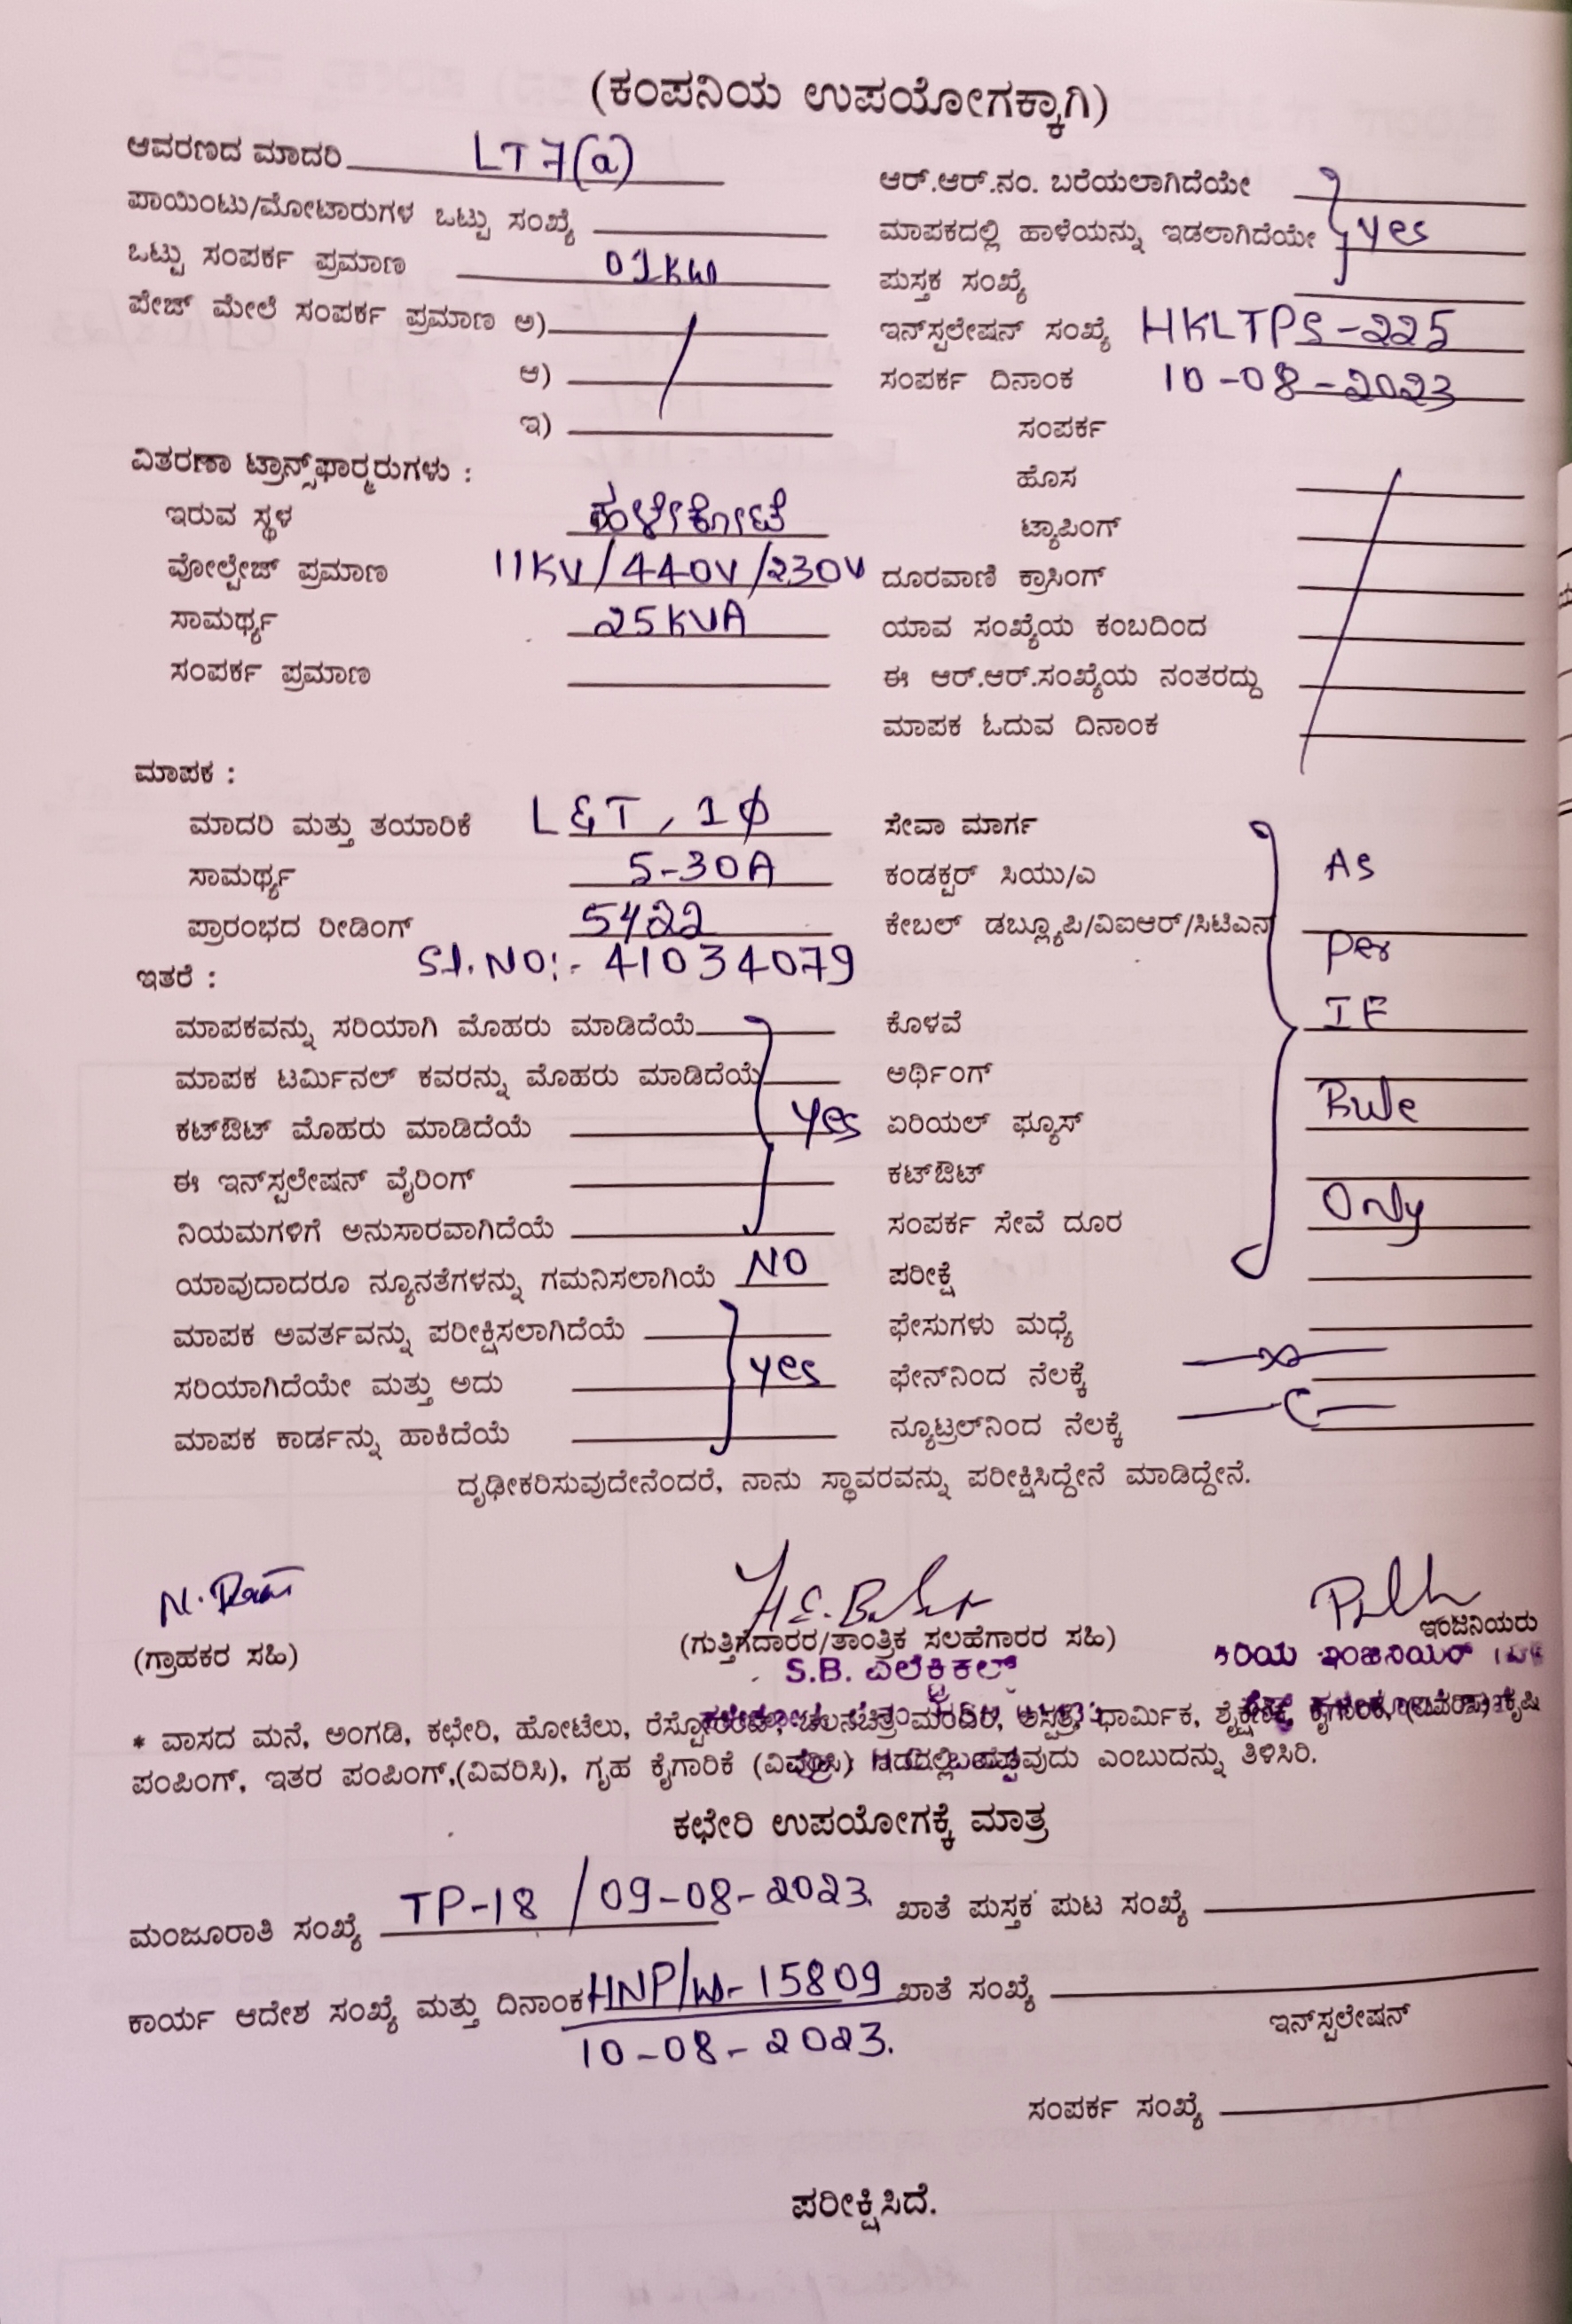 (ಕಂಪನಿಯ ಉಪಯೋಗಕ್ಕಾಗಿ)
ಆವರಣದ ಮಾದರಿ LT 7(a)
ಪಾಯಿಂಟು/ಮೋಟಾರುಗಳ ಒಟ್ಟು ಸಂಖ್ಯೆ
ಒಟ್ಟು ಸಂಪರ್ಕ ಪ್ರಮಾಣ 01KW
ಪೇಜ್ ಮೇಲೆ ಸಂಪರ್ಕ ಪ್ರಮಾಣ ಅ)
ಆ)
ಇ)
ವಿತರಣಾ ಟ್ರಾನ್ಸ್‌ಫಾರ್‍ಮರುಗಳು :
ಇರುವ ಸ್ಥಳ ಹಳೇಕೋಟೆ
ವೋಲ್ಟೇಜ್ ಪ್ರಮಾಣ 11KV/440V/230V
ಸಾಮರ್ಥ್ಯ 25KVA
ಸಂಪರ್ಕ ಪ್ರಮಾಣ
ಆರ್.ಆರ್.ನಂ. ಬರೆಯಲಾಗಿದೆಯೇ
ಮಾಪಕದಲ್ಲಿ ಹಾಳೆಯನ್ನು ಇಡಲಾಗಿದೆಯೇ yes
ಪುಸ್ತಕ ಸಂಖ್ಯೆ
ಇನ್‌ಸ್ಟಲೇಷನ್ ಸಂಖ್ಯೆ HKLTPS-225
ಸಂಪರ್ಕ ದಿನಾಂಕ 10-08-2023
ಸಂಪರ್ಕ
ಹೊಸ
ಟ್ಯಾಪಿಂಗ್
ದೂರವಾಣಿ ಕ್ರಾಸಿಂಗ್
ಯಾವ ಸಂಖ್ಯೆಯ ಕಂಬದಿಂದ
ಈ ಆರ್.ಆರ್.ಸಂಖ್ಯೆಯ ನಂತರದ್ದು
ಮಾಪಕ ಓದುವ ದಿನಾಂಕ
ಮಾಪಕ :
ಮಾದರಿ ಮತ್ತು ತಯಾರಿಕೆ L&T, 1ϕ
ಸಾಮರ್ಥ್ಯ 5-30A
ಪ್ರಾರಂಭದ ರೀಡಿಂಗ್ 5422
Sl.NO:- 41034079
ಇತರೆ :
ಮಾಪಕವನ್ನು ಸರಿಯಾಗಿ ಮೊಹರು ಮಾಡಿದೆಯೆ
ಮಾಪಕ ಟರ್ಮಿನಲ್ ಕವರನ್ನು ಮೊಹರು ಮಾಡಿದೆಯೆ
ಕಟ್‌ಔಟ್ ಮೊಹರು ಮಾಡಿದೆಯೆ yes
ಈ ಇನ್‌ಸ್ಟಲೇಷನ್ ವೈರಿಂಗ್
ನಿಯಮಗಳಿಗೆ ಅನುಸಾರವಾಗಿದೆಯೆ
ಯಾವುದಾದರೂ ನ್ಯೂನತೆಗಳನ್ನು ಗಮನಿಸಲಾಗಿಯೆ NO
ಮಾಪಕ ಅವರ್ತವನ್ನು ಪರೀಕ್ಷಿಸಲಾಗಿದೆಯೆ
ಸರಿಯಾಗಿದೆಯೇ ಮತ್ತು ಅದು yes
ಮಾಪಕ ಕಾರ್ಡನ್ನು ಹಾಕಿದೆಯೆ
ಸೇವಾ ಮಾರ್ಗ
ಕಂಡಕ್ಟರ್ ಸಿಯು/ಎ As
ಕೇಬಲ್ ಡಬ್ಲ್ಯೂಪಿ/ವಿಐಆರ್/ಸಿಟಿಎಸ್ Per
ಕೊಳವೆ IE
ಅರ್ಥಿಂಗ್
ಏರಿಯಲ್ ಫ್ಯೂಸ್ Rule
ಕಟ್‌ಔಟ್
ಸಂಪರ್ಕ ಸೇವೆ ದೂರ Only
ಪರೀಕ್ಷೆ
ಫೇಸುಗಳು ಮಧ್ಯೆ
ಫೇಸ್‌ನಿಂದ ನೆಲಕ್ಕೆ
ನ್ಯೂಟ್ರಲ್‌ನಿಂದ ನೆಲಕ್ಕೆ
ದೃಢೀಕರಿಸುವುದೇನೆಂದರೆ, ನಾನು ಸ್ಥಾವರವನ್ನು ಪರೀಕ್ಷಿಸಿದ್ದೇನೆ ಮಾಡಿದ್ದೇನೆ.
(ಗ್ರಾಹಕರ ಸಹಿ)
(ಗುತ್ತಿಗೆದಾರರ/ತಾಂತ್ರಿಕ ಸಲಹೆಗಾರರ ಸಹಿ)
ಇಂಜಿನಿಯರು
S.B. ಎಲೆಕ್ಟ್ರಿಕಲ್
ಕಿರಿಯ ಇಂಜಿನಿಯರ್
* ವಾಸದ ಮನೆ, ಅಂಗಡಿ, ಕಛೇರಿ, ಹೋಟೆಲು, ರೆಸ್ಟೋರೆಂಟ್, ಚಲನಚಿತ್ರ ಮಂದಿರ, ಆಸ್ಪತ್ರೆ, ಧಾರ್ಮಿಕ, ಶೈಕ್ಷಣಿಕ, ಕೈಗಾರಿಕೆ, (ವಿವರಿಸಿ) ಕೃಷಿ
ಪಂಪಿಂಗ್, ಇತರ ಪಂಪಿಂಗ್,(ವಿವರಿಸಿ), ಗೃಹ ಕೈಗಾರಿಕೆ (ವಿವರಿಸಿ) ಎಂಬುದನ್ನು ತಿಳಿಸಿರಿ.
ಕಛೇರಿ ಉಪಯೋಗಕ್ಕೆ ಮಾತ್ರ
ಮಂಜೂರಾತಿ ಸಂಖ್ಯೆ TP-18 / 09-08-2023 ಖಾತೆ ಪುಸ್ತಕ ಪುಟ ಸಂಖ್ಯೆ
ಕಾರ್ಯ ಆದೇಶ ಸಂಖ್ಯೆ ಮತ್ತು ದಿನಾಂಕ HNP/W-15809 ಖಾತೆ ಸಂಖ್ಯೆ
10-08-2023.
ಇನ್‌ಸ್ಟಲೇಷನ್
ಸಂಪರ್ಕ ಸಂಖ್ಯೆ
ಪರೀಕ್ಷಿಸಿದೆ.